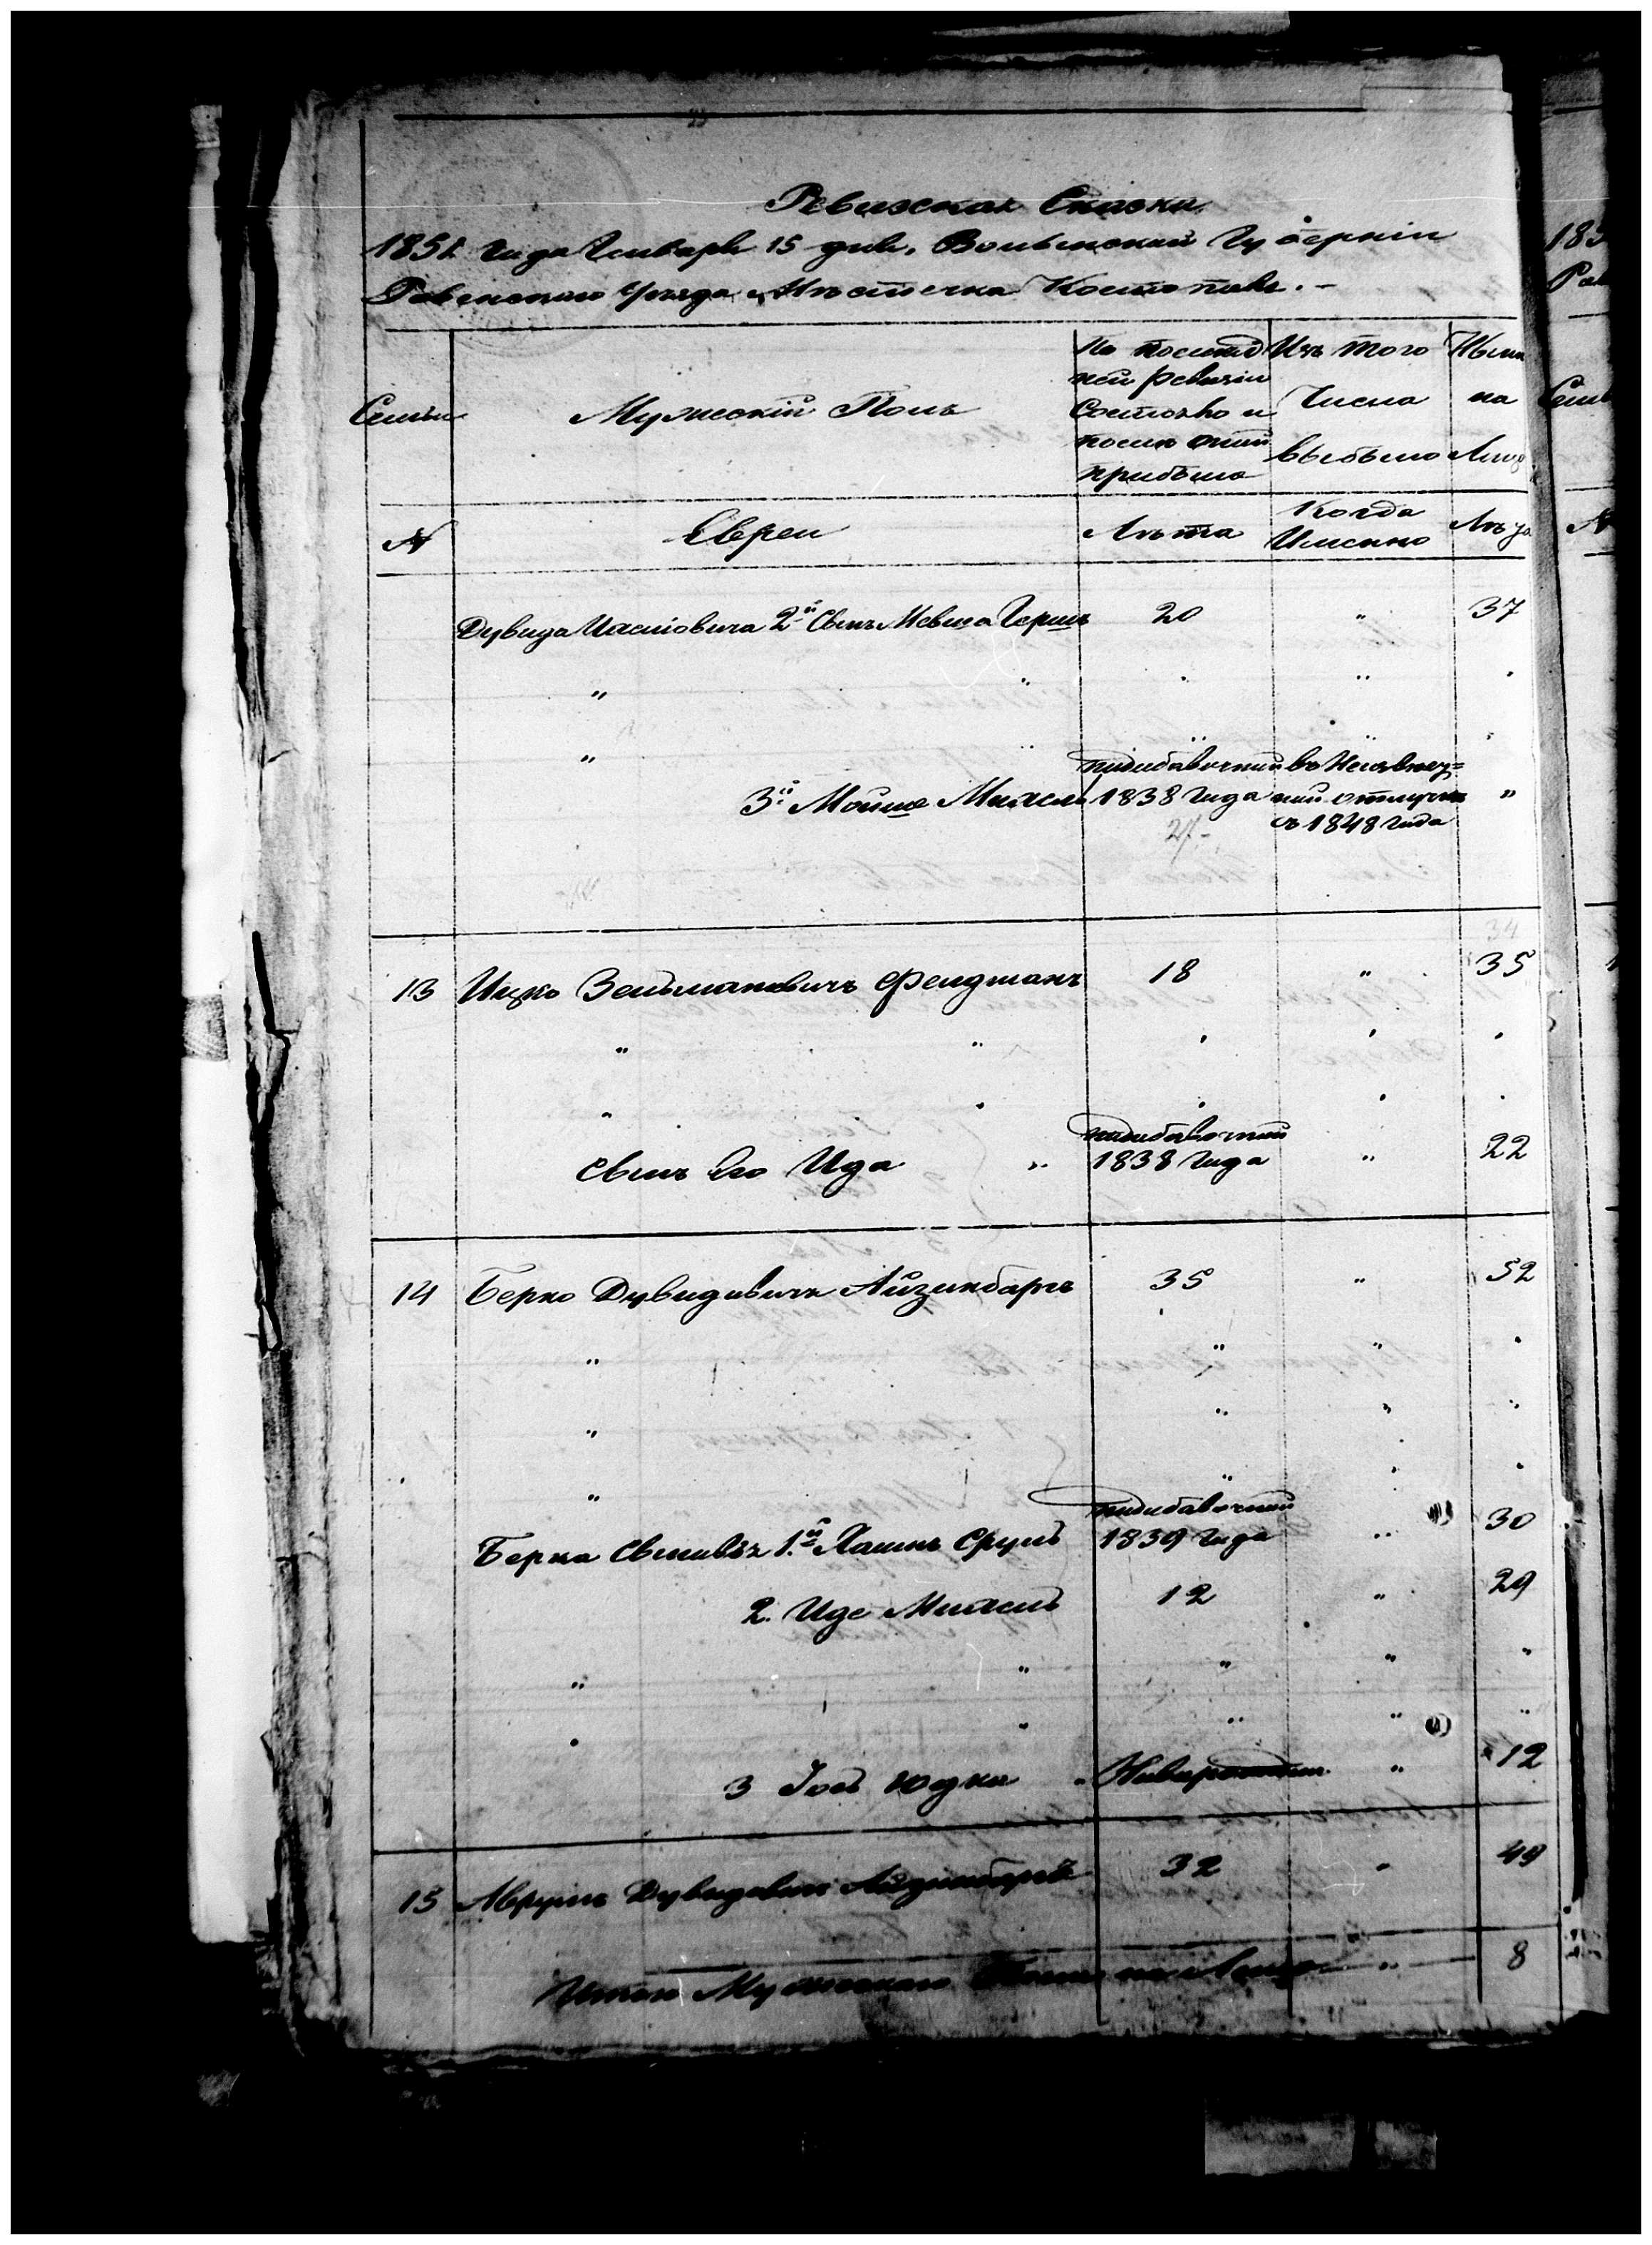 Ревизская Сказка
1851 года Генваря 15 дня, Волынской Губернiи
Ровенскаго Уѣзда Мѣстечка Костополя. -
Семьи
Мужескiй Полъ
По послѣд
ней ревизiи
Состояло и
послѣ оной
прибыло
Изъ того
Числа
выбыло
Нынѣ
на
Лицо
№
Евреи
Лѣта
Когда
Именно
Лѣта
Дувида Иосiовича 2й Сынъ Мевша Гершъ 20 " 37
3й Мойше 1838 года
подобавочный въ Неизвѣст=
ной отлучкѣ "
съ 1848 года
34
13 Ицко Зельмановичъ Фелдманъ 18 " 35
подобавочный
Сынъ Его Ида " 1838 года " 22
14 Берко Дувидовичъ Айзинбаргъ 35 " 52
подобавочный
Берка Сыновья 1й Хаимъ Сруль 1839 года " 30
2. Иде 12 " 29
3 Iось Юдка Новорожден " 12
15 Аврумъ Дувидовичъ Айзинбаргъ 32 " 49
Итого Мужескаго Пола на Лицо " 8
183
Ров
Семьи
№